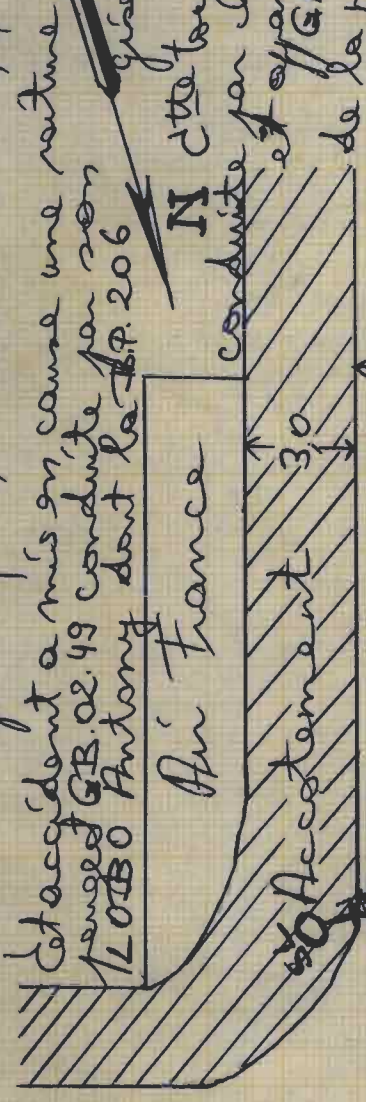 Cet accident a mis en cause une voiture
Peugeot GB.02.49 conduite par son
LOBO Antony dont la B.P. 206
N
Air France
Accotement
30
conduite par
et
de la